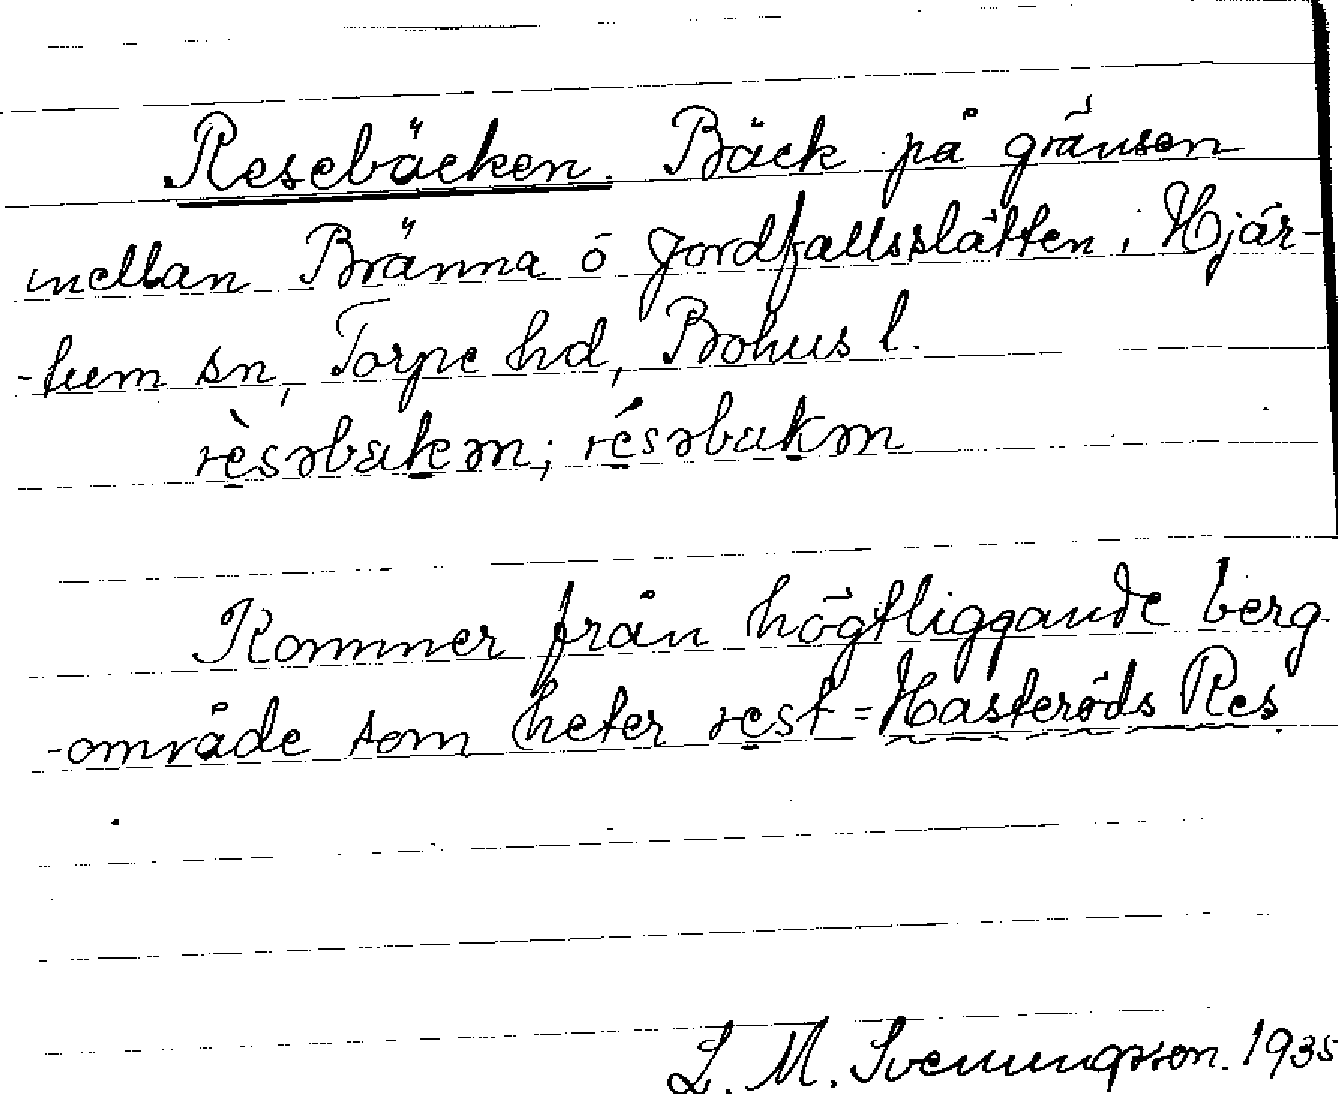 Resebäcken. Bäck på gränsen
mellan Bränna o Jordfallsslätten, Hjär-
-tum sn, Torpe hd, Bohus l.
rèsəbakəm; résəbakəm
Kommer från högtliggande berg
-område som heter rest = Hasteröds Res
L. M. Svenungsson. 1935